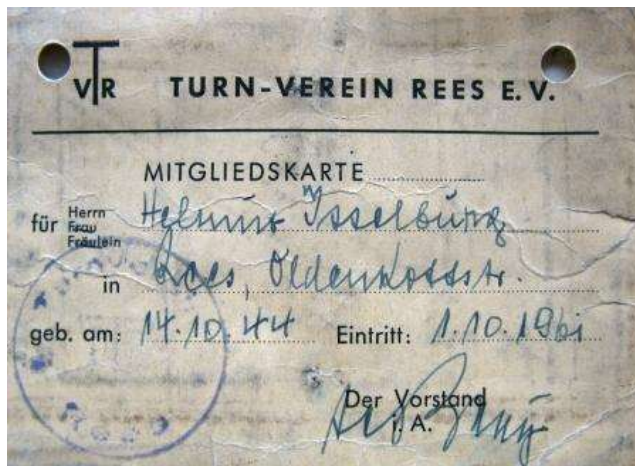 VTR TURN-VEREIN REES E. V.
MITGLIEDSKARTE
für Herrn
Frau
Fräulein
Helmut Isselburg
in Rees, Oldenkottstr.
geb. am: 14.10.44 Eintritt: 1.10.1961
Der Vorstand
i. A.